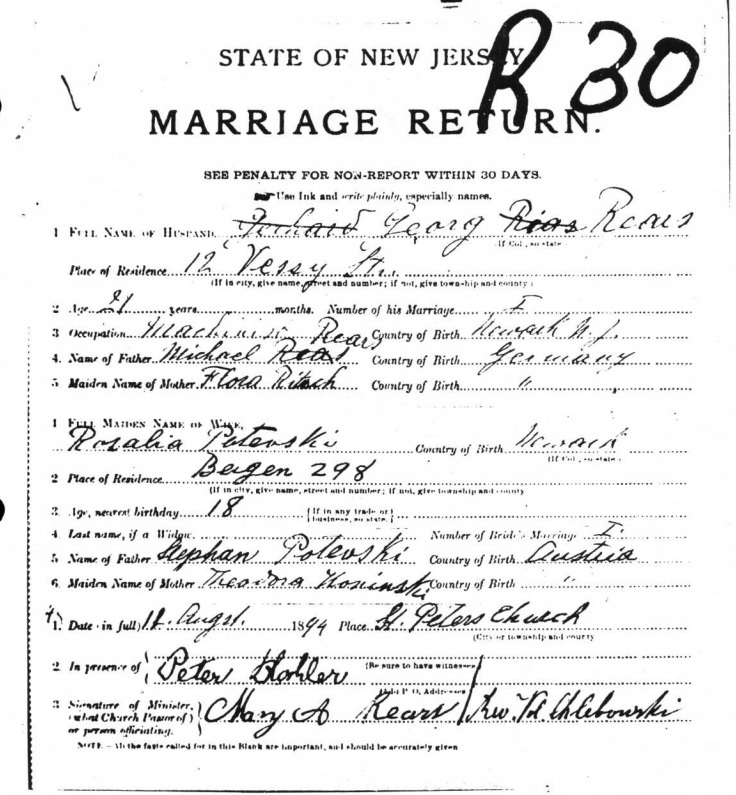 R 30
STATE OF NEW JERSEY
MARRIAGE RETURN.
SEE PENALTY FOR NON-REPORT WITHIN 30 DAYS.
Use Ink and write plainly, especially names.
1 FULL NAME OF HUSBAND Georg Rias Rears
(If Col., so state
Place of Residence 12 Vessy St.
(If in city, give name, street and number; if not, give township and county)
2 Age 21 years months. Number of his Marriage I
3 Occupation Machinist Country of Birth Newark N. J.
Rears
4. Name of Father Michael Reas Country of Birth Germany
5 Maiden Name of Mother Flora Ritsch Country of Birth "
1 FULL MAIDEN NAME OF WIFE,
Rosalia Potevski Country of Birth Newark
(If Col., so state)
2 Place of Residence Bergen 298
(If in city, give name, street and number; if not, give township and county
3. Age, nearest birthday 18 (If in any trade or business, so state.)
4. Last name, if a Widow Number of Bride's Marriage I
5 Name of Father Stephan Potevski Country of Birth Austria
6. Maiden Name of Mother Theodora Kosinski Country of Birth "
1. Date (in full) 11. Augst. 1894 Place St. Peters Church
(City or township and county
2 In presence of Peter (Be sure to have witnesses
Add P. O. Address
3 Signature of Minister, (what Church Pastor of) or person officiating. Mary A Rears Rev. Chlebowski
NOTE.—All the facts called for in this Blank are important, and should be accurately given